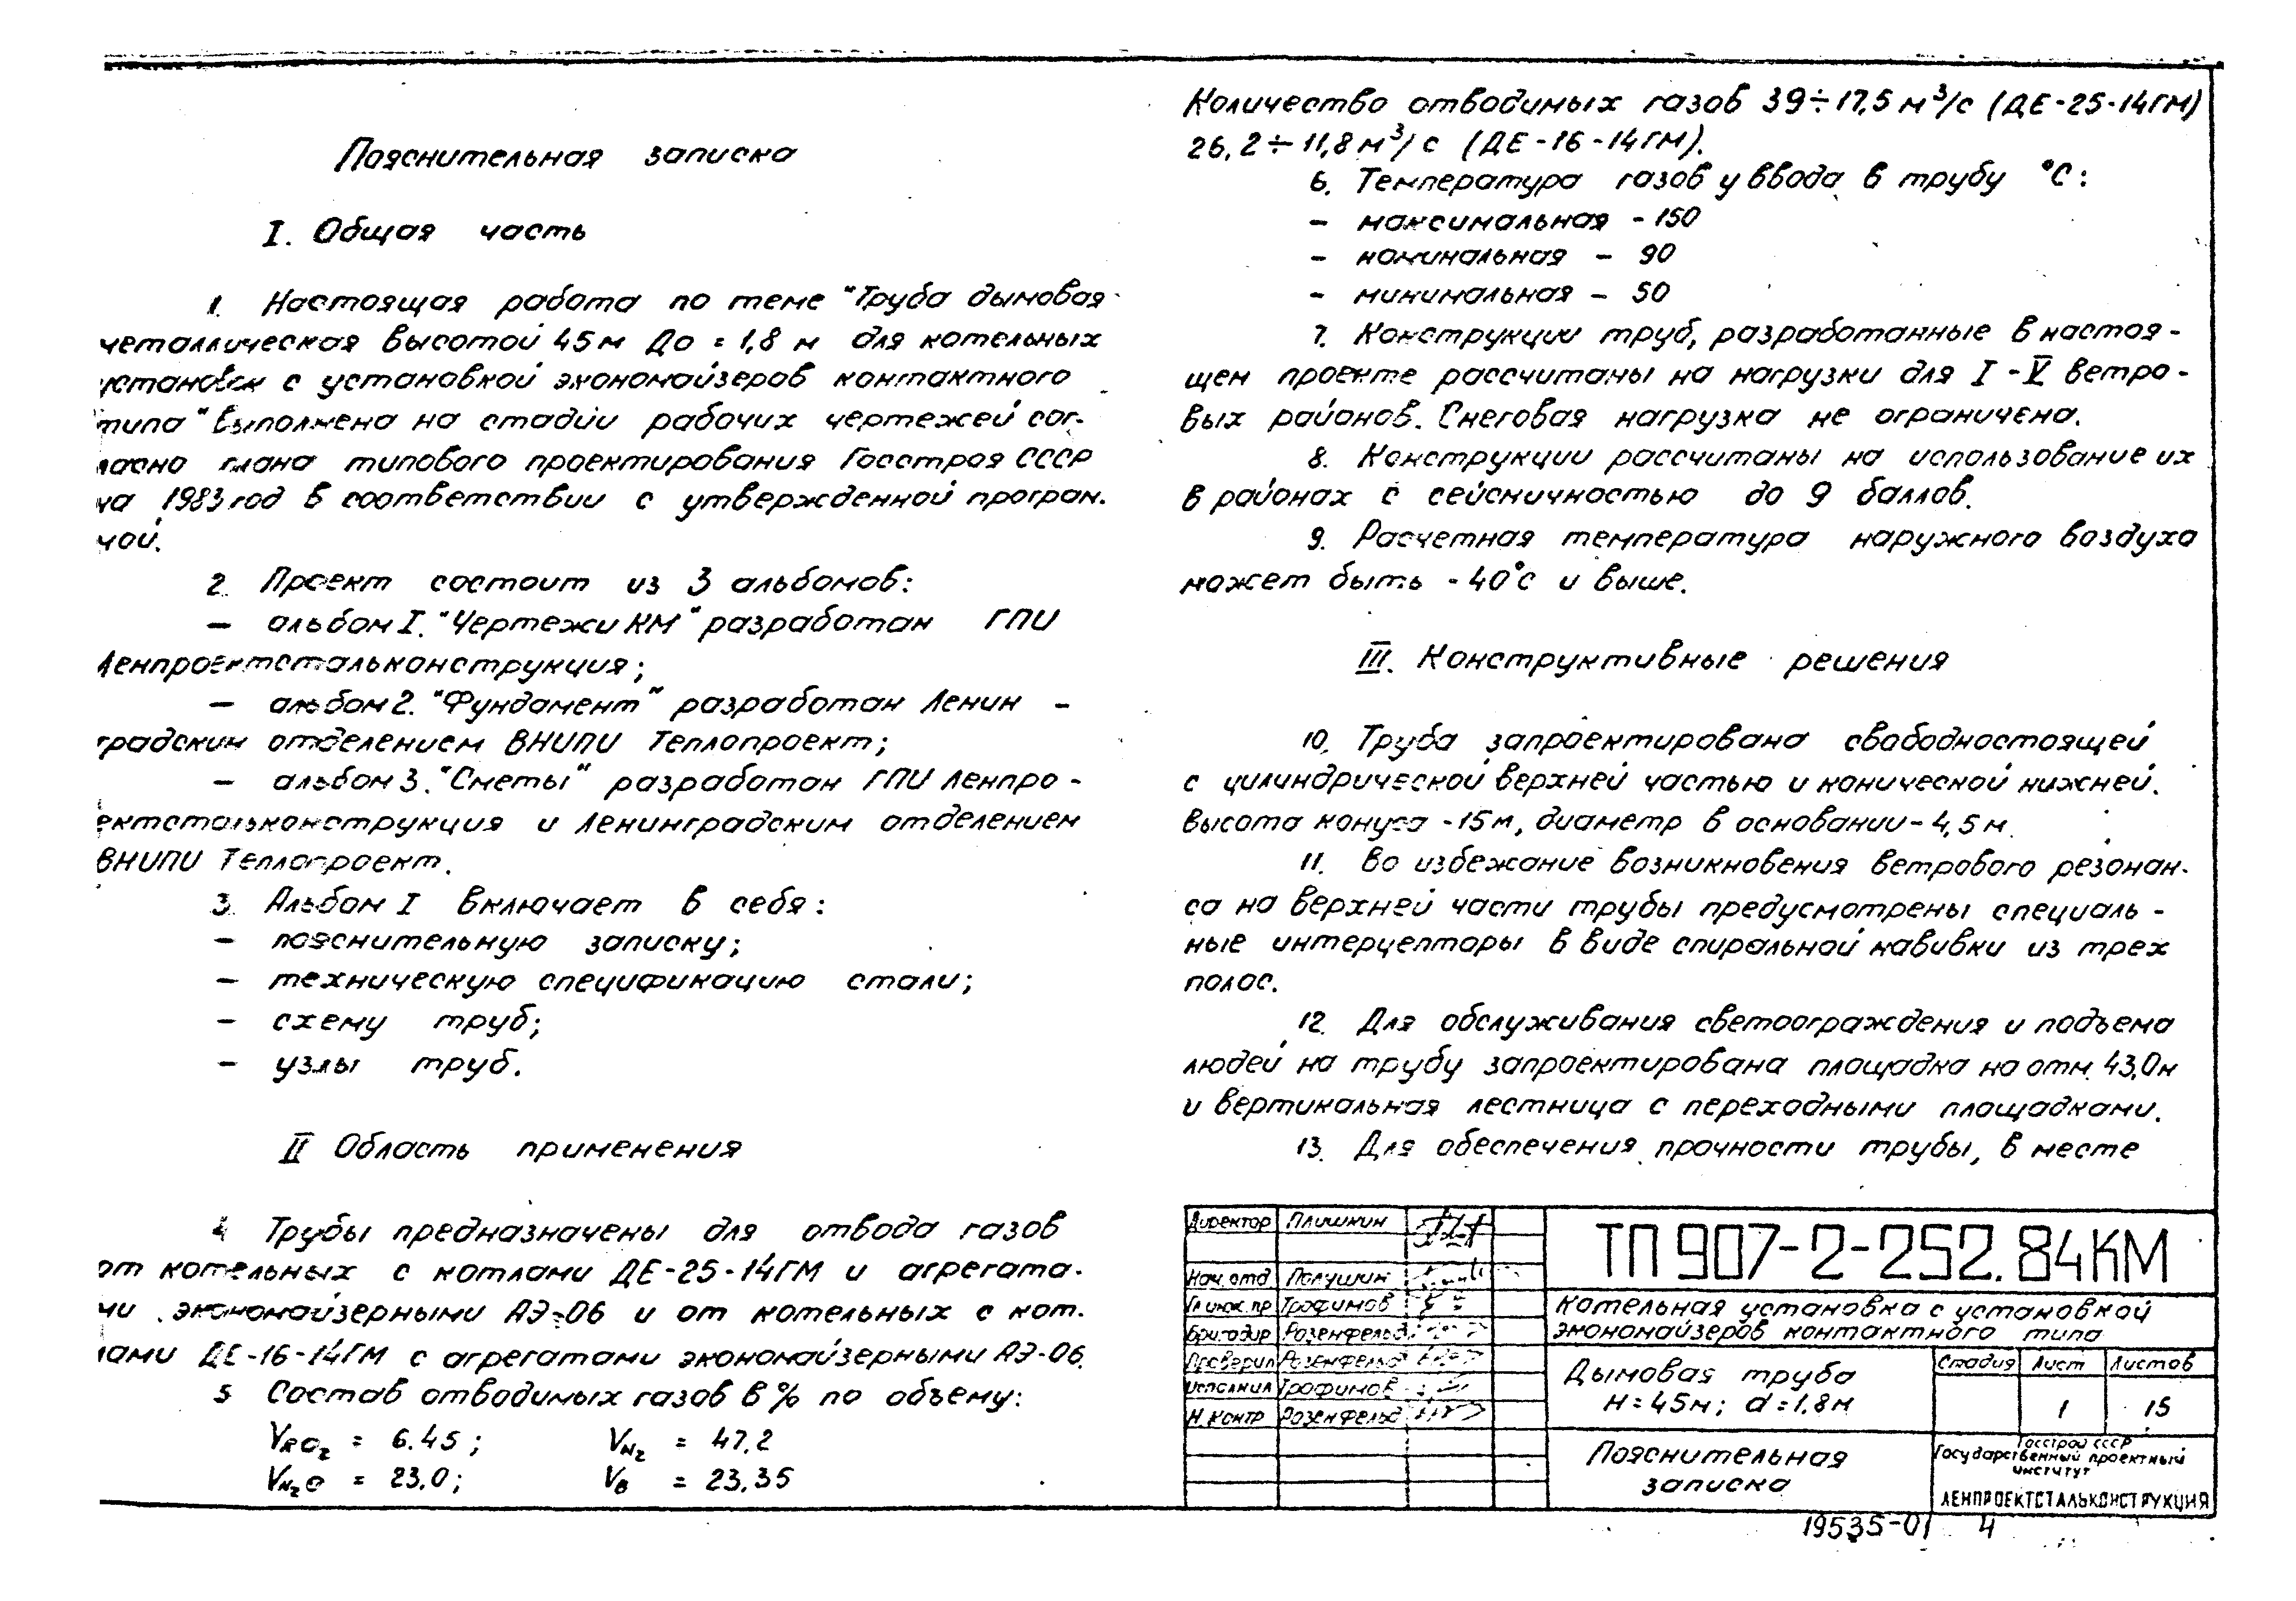 Пояснительная записка
I. Общая часть
1. Настоящая работа по теме "Труба дымовая
металлическая высотой 45м До = 1,8 м для котельных
установок с установкой экономайзеров контактного
типа" выполнена на стадии рабочих чертежей сог-
ласно плана типового проектирования Госстроя СССР
на 1983 год в соответствии с утвержденной програм.
мой.
2. Проект состоит из 3 альбомов:
— альбом I. "Чертежи КМ" разработан ГПИ
Ленпроектстальконструкция;
— альбом 2. "Фундамент" разработан Ленин -
градским отделением ВНИПИ Теплопроект;
— альбом 3. "Сметы" разработан ГПИ Ленпро -
ектстальконструкция и Ленинградским отделением
ВНИПИ Теплопроект.
3. Альбом I включает в себя:
— пояснительную записку;
— техническую спецификацию стали;
— схему труб;
— узлы труб.
II Область применения
4 Трубы предназначены для отвода газов
от котельных с котлами ДЕ-25-14ГМ и агрегата-
ми экономайзерными АЭ-06 и от котельных с кот.
лами ДЕ-16-14ГМ с агрегатами экономайзерными АЭ-06.
5 Состав отводимых газов в % по объему:
VRO2 = 6.45; VN2 = 47,2
VN2O = 23,0; VB = 23,35
Количество отводимых газов 39÷17,5 м³/с (ДЕ-25-14ГМ)
26,2÷11,8 м³/с (ДЕ-16-14ГМ).
6. Температура газов у ввода в трубу °С:
— максимальная - 150
— номинальная - 90
— минимальная - 50
7. Конструкции труб, разработанные в настоя -
щем проекте рассчитаны на нагрузки для I - V ветро -
вых районов. Снеговая нагрузка не ограничена.
8. Конструкции рассчитаны на использование их
в районах с сейсмичностью до 9 баллов.
9. Расчетная температура наружного воздуха
может быть -40°с и выше.
III. Конструктивные решения
10. Труба запроектирована свободностоящей
с цилиндрической верхней частью и конической нижней.
Высота конуса -15м, диаметр в основании - 4,5 м.
11. Во избежание возникновения ветрового резонан-
са на верхней части трубы предусмотрены специаль -
ные интерцепторы в виде спиральной навивки из трех
полос.
12. Для обслуживания светоограждения и подъема
людей на трубу запроектирована площадка на отм. 43,0м
и вертикальная лестница с переходными площадками.
13. Для обеспечения прочности трубы, в месте
Директор Плишкин
Нач. отд. Полушин
Гл.инж.пр Трофимов
Бригадир Розенфельд
Проверил Розенфельд
Исполнил Трофимов
Н.контр Розенфельд
ТП 907-2-252.84КМ
Котельная установка с установкой
экономайзеров контактного типа
Дымовая труба
H=45м; d=1,8м
Стадия Лист Листов
1 15
Пояснительная
записка
Госстрой СССР
Государственный проектный
институт
ЛЕНПРОЕКТСТАЛЬКОНСТРУКЦИЯ
19535-01 4